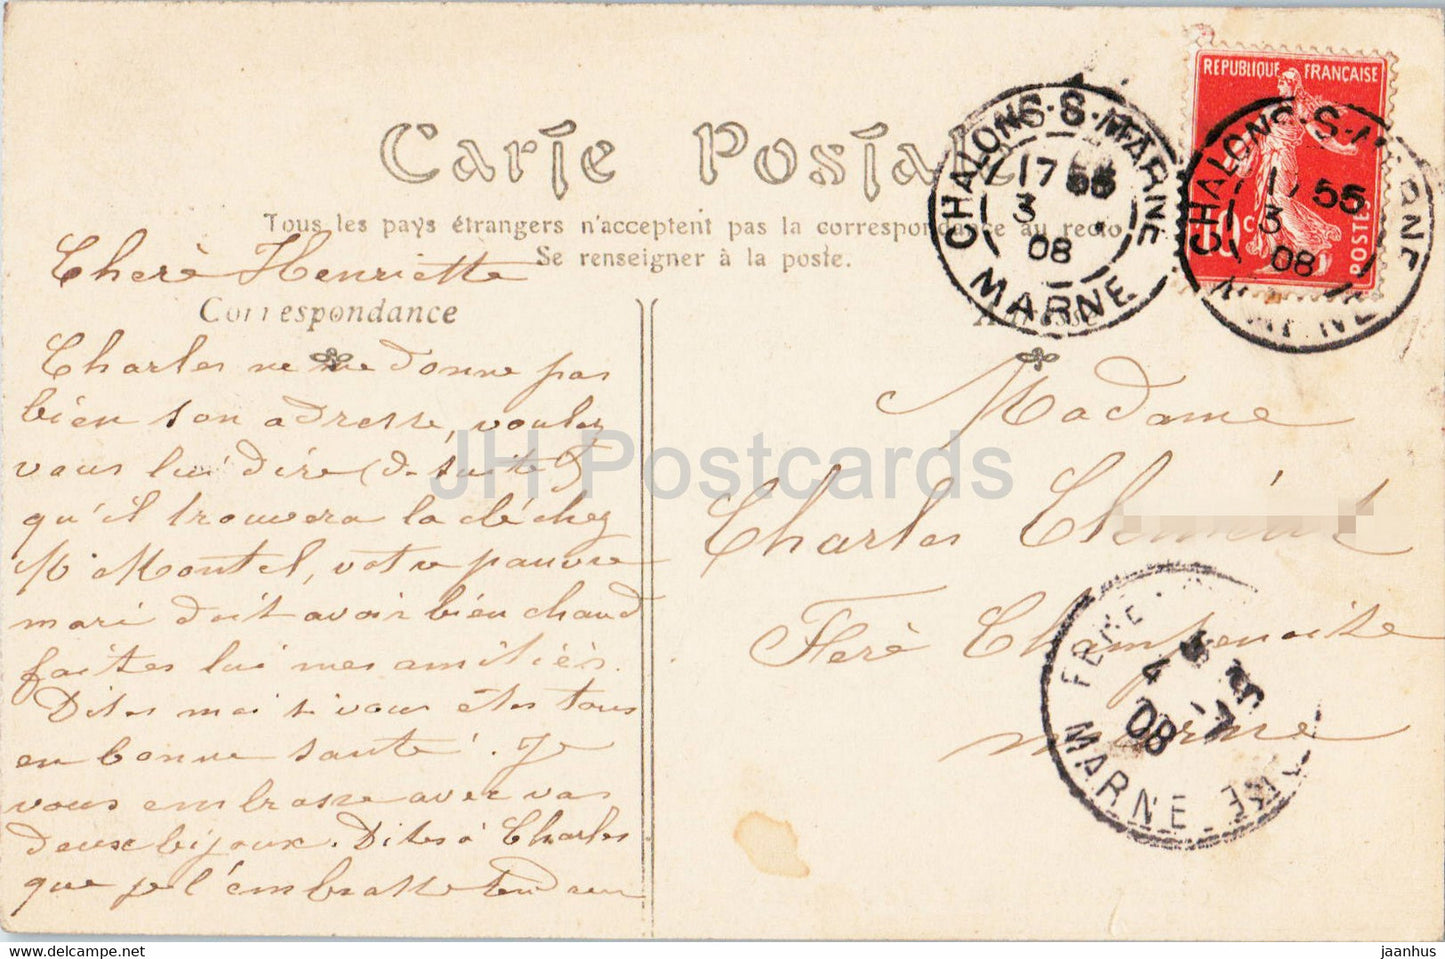 Carte Postale
Tous les pays étrangers n'acceptent pas la correspondance au recto
Se renseigner à la poste.
Cherè Henriette
Correspondance
Charles ne me donne pas
bien son adresse, voulez
vous lui dire (de suite)
qu'il trouvera la clé chez
Mr Montel, votre pauvre
mari doit avoir bien chaud
faites lui mes amitiés.
Dites moi si vous êtes tous
en bonne santé. Je
vous embrasse avec vos
deux bijoux. Dites à Charles
que je l'embrasse
Madame
Charles
Ferè Champenoise
marne
REPUBLIQUE FRANÇAISE
POSTES
10c
CHALONS-S-MARNE
17 55
3
08
MARNE
CHALONS-S-MARNE
17 55
3
08
MARNE
FERE
4
08
MARNE
JH Postcards
https://www.delcampe.net
jaanhus